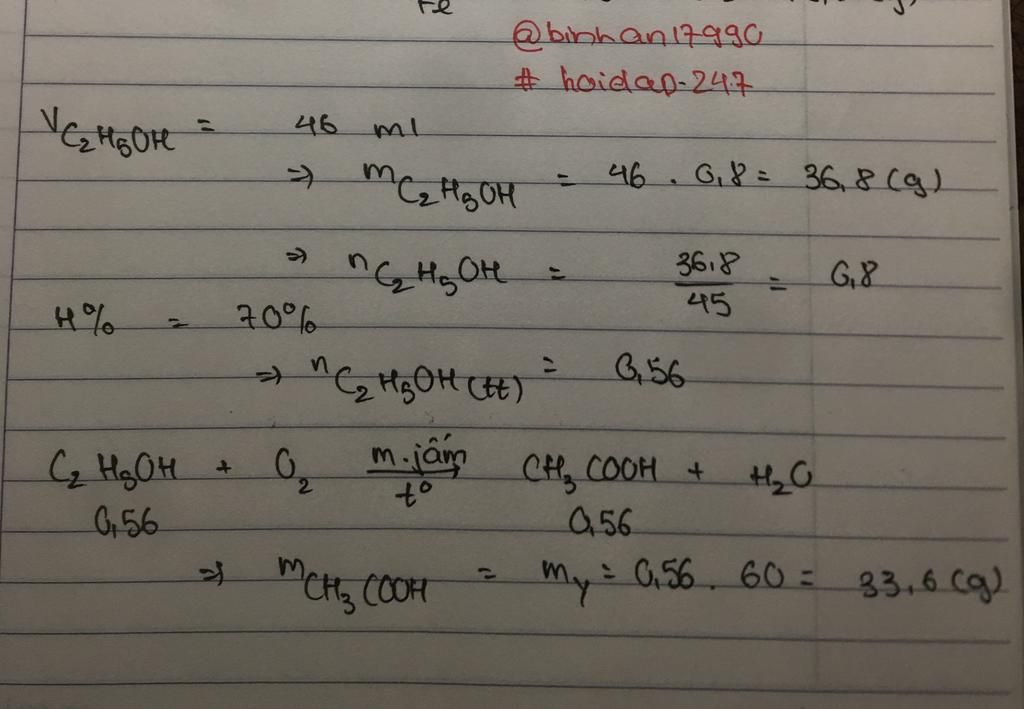 Fe
@binhan17990
# hoidap-247
V C₂H₅OH = 46 ml
⇒ m C₂H₅OH = 46 . 0,8 = 36,8 (g)
⇒ n C₂H₅OH = 36,8 / 45 = 0,8
H% = 70%
⇒ n C₂H₅OH (tt) = 0,56
C₂H₅OH + O₂ m.jấm → t° CH₃COOH + H₂O
0,56 0,56
⇒ m CH₃COOH = m Y = 0,56 . 60 = 33,6 (g)